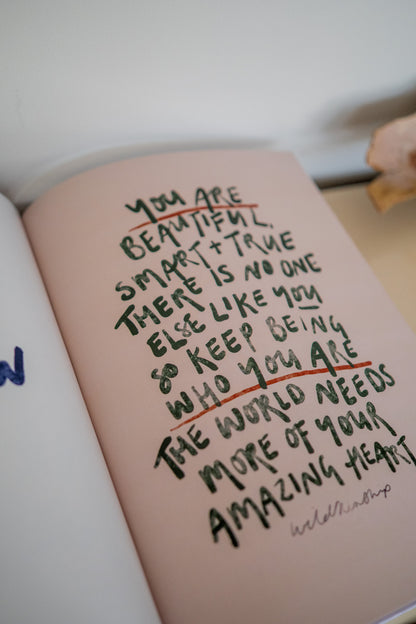 W
YOU ARE
BEAUTIFUL,
SMART + TRUE
THERE IS NO ONE
ELSE LIKE YOU
SO KEEP BEING
WHO YOU ARE
THE WORLD NEEDS
MORE OF YOUR
AMAZING HEART